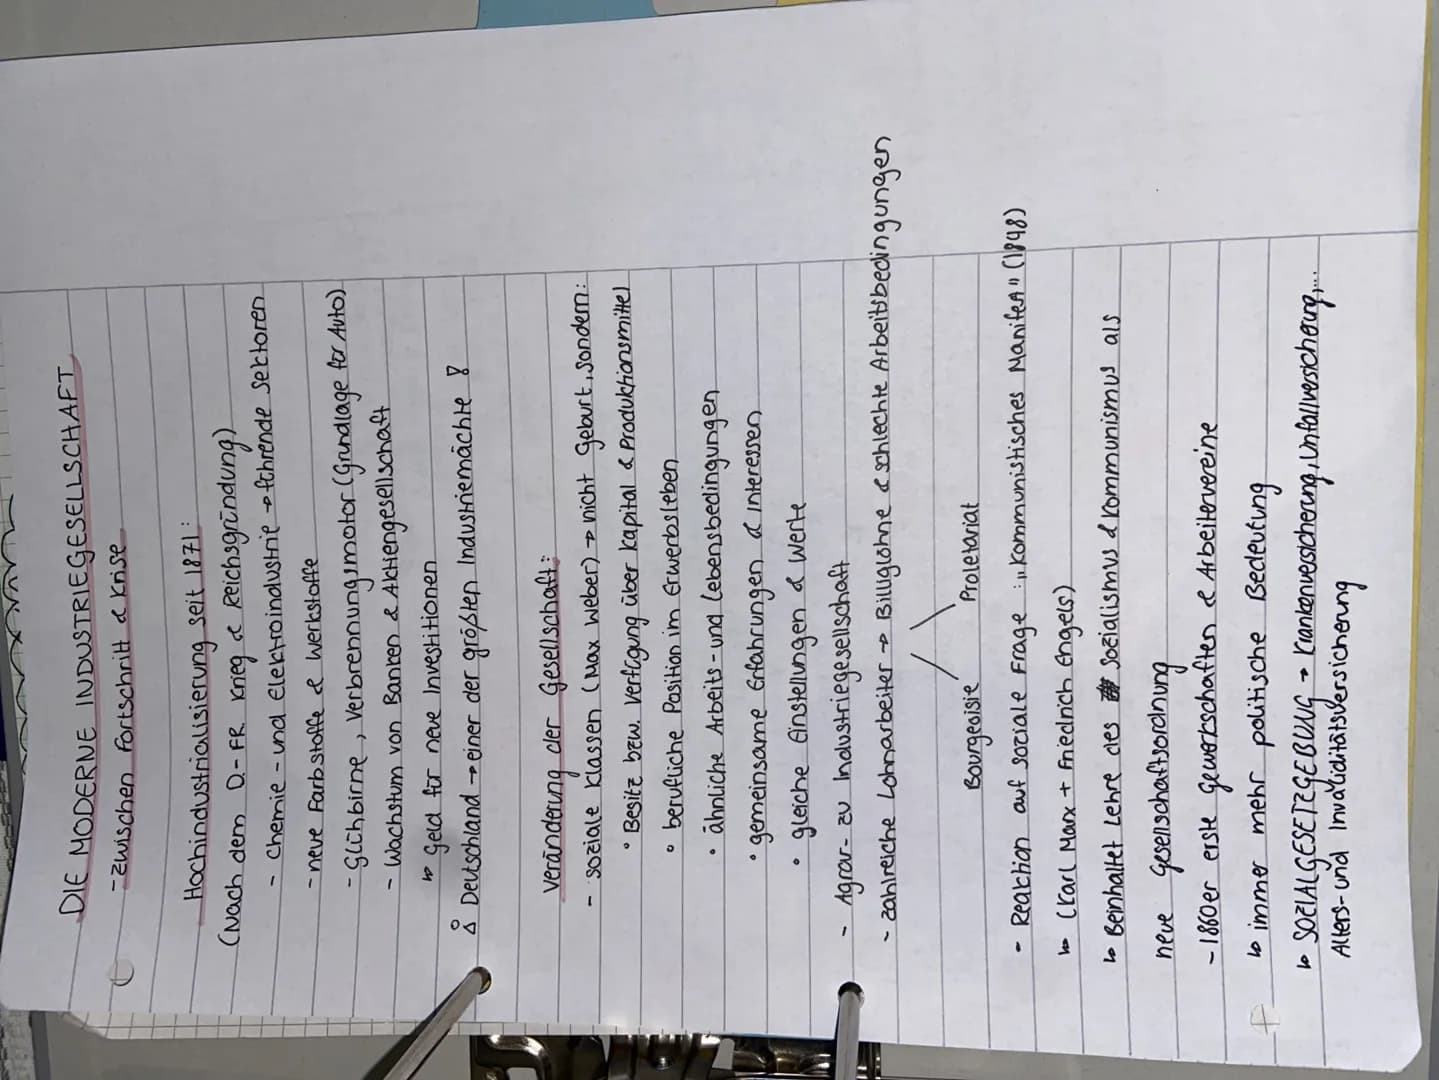 DIE MODERNE INDUSTRIEGESELLSCHAFT
- zwischen Fortschritt & Krise
Hochindustrialisierung seit 1871:
(Nach dem D.-FR. Krieg & Reichsgründung)
- Chemie- und Elektroindustrie → führende Sektoren
- neue Farbstoffe & Werkstoffe
- Glühbirne, Verbrennungsmotor (Grundlage für Auto)
- Wachstum von Banken & Aktiengesellschaft
↳ Geld für neue Investitionen
Deutschland → einer der größten Industriemächte !
Veränderung der Gesellschaft:
- soziale Klassen (Max Weber) → nicht Geburt, sondern:
• Besitz bzw. Verfügung über Kapital & Produktionsmittel
• berufliche Position im Erwerbsleben
• ähnliche Arbeits- und Lebensbedingungen
• gemeinsame Erfahrungen & Interessen
• gleiche Einstellungen & Werte
- Agrar- zu Industriegesellschaft
- zahlreiche Lohnarbeiter → Billiglöhne & schlechte Arbeitsbedingungen
Bourgeoisie Proletariat
- Reaktion auf soziale Frage: „Kommunistisches Manifest" (1848)
↳ (Karl Marx + Friedrich Engels)
↳ Beinhaltet Lehre des Sozialismus & Kommunismus als
neue Gesellschaftsordnung
- 1860er erste Gewerkschaften & Arbeitervereine
↳ immer mehr politische Bedeutung
↳ SOZIALGESETZGEBUNG → Krankenversicherung, Unfallversicherung,...
Alters- und Invaliditätsversicherung